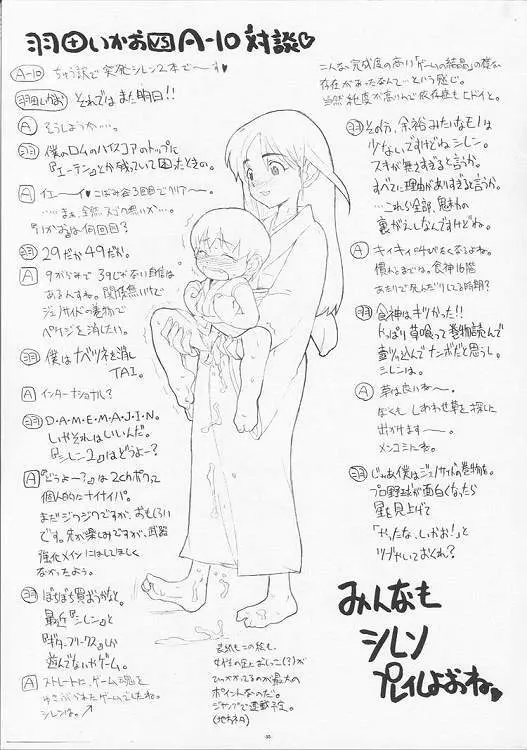 羽田いかおVSA-10対談♡
A-10 ちゅう訳で突発シレン2本で〜す♥
羽田いかお それではまた明日!!
A そうしようか…。
羽 僕のロムのハイスコアのトップに
『エーテン』とか残っていて困ったときの。
A イエ〜イ
……まぁ、全然スゴク無いか…。
『いかおは何回目?
羽 29だか49だか。
A
あるんすね。関係無いけど
ジェノサイドの巻物で
ペケジを消したい。
羽 僕はナベツネを消し
TAI。
A インターナショナル?
羽 D・A・M・E・M・A・J・I・N。
しかそれはいいんだ。
『シレン2』はどうよー?
A 『どうよー?』は2chポクって
個人的にナイナイバ。
まだジクジクですが、おもしろい
です。先が楽しみですが、武器
強化メインにはしてほしく
なかったよう。
羽 ぼちぼち買おうかなと。
最近『シレン』と
『ギターフリークス』しか
遊んでないやゲーム。
A ストレートに、ゲーム魂を
ゆさぶられたゲームでしたね。
シレンは。
こんな完成度の高い「ゲームの結晶」の様な
存在があったなんて…という感じ。
当然純度が高いんで依存性もヒドイと。
羽 その分、余裕みたいなモノは
少ないですけどねシレン。
スキが無さすぎると言うか。
すべてに理由がありすぎると言うか。
…これら全部、愚杯の
裏がえしなんですけどね。
A キィキィ叫びたくなるよね。
慣れるまでは。食神16階
あたりで死んだりしてる時期?
羽 食神はキツかった!!
やっぱり草喰って巻物読んで
壷つっ込んでナンボだと思うし。
シレンは。
A 草は良いね〜。
ぼくも しあわせ草を探しに
出かけます〜。
メンコミにね。
羽 じゃあ僕はジェノサイドの巻物を。
プロ野球が面白くなったら
星を見上げて
「やったな、しかお!」と
ツブやいておくれ?
みんなも
シレン
プレイしよおね♥
表紙もこの絵も
女の子の足におしっこ(?)が
ひっかかってるのが最大の
ポイントなのだ。
ジャンプで連載予定。